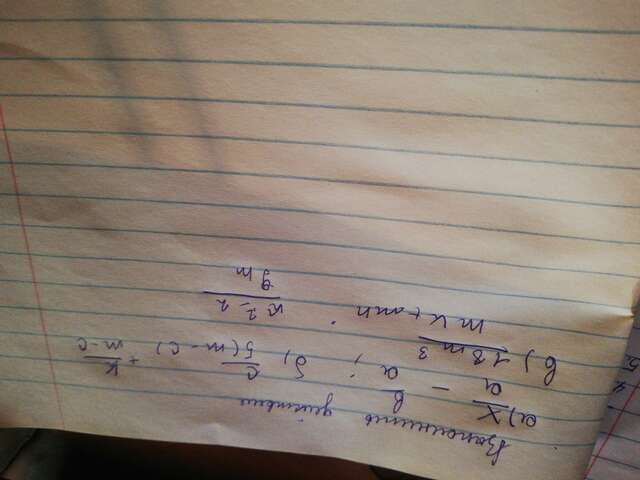 Выполнить действия
а) x/a - b/a ; б) c/5(m-c) + k/m-c
в) 18m³/mk+amn · k²-2/9m